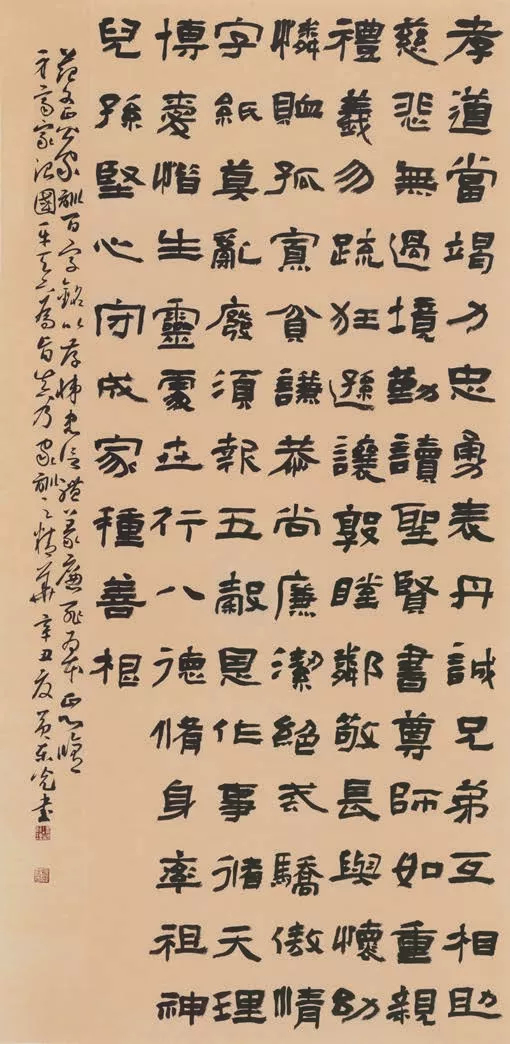 孝道當竭力忠勇表丹誠兄弟互相助
慈悲無過境勤讀聖賢書尊師如重親
禮義勿疏狂遜讓敦睦鄰敬長與懷幼
憐恤孤寡貧謙恭尚廉潔絕戒驕傲情
字紙莫亂廢須報五穀恩作事循天理
博愛惜生靈處世行八德脩身率祖神
兒孫堅心守成家種善根
范文正公家訓百字銘以孝悌忠信禮義廉恥為本正心脩
身齊家治國平天下為旨真乃家訓之精華辛丑夏黃東書